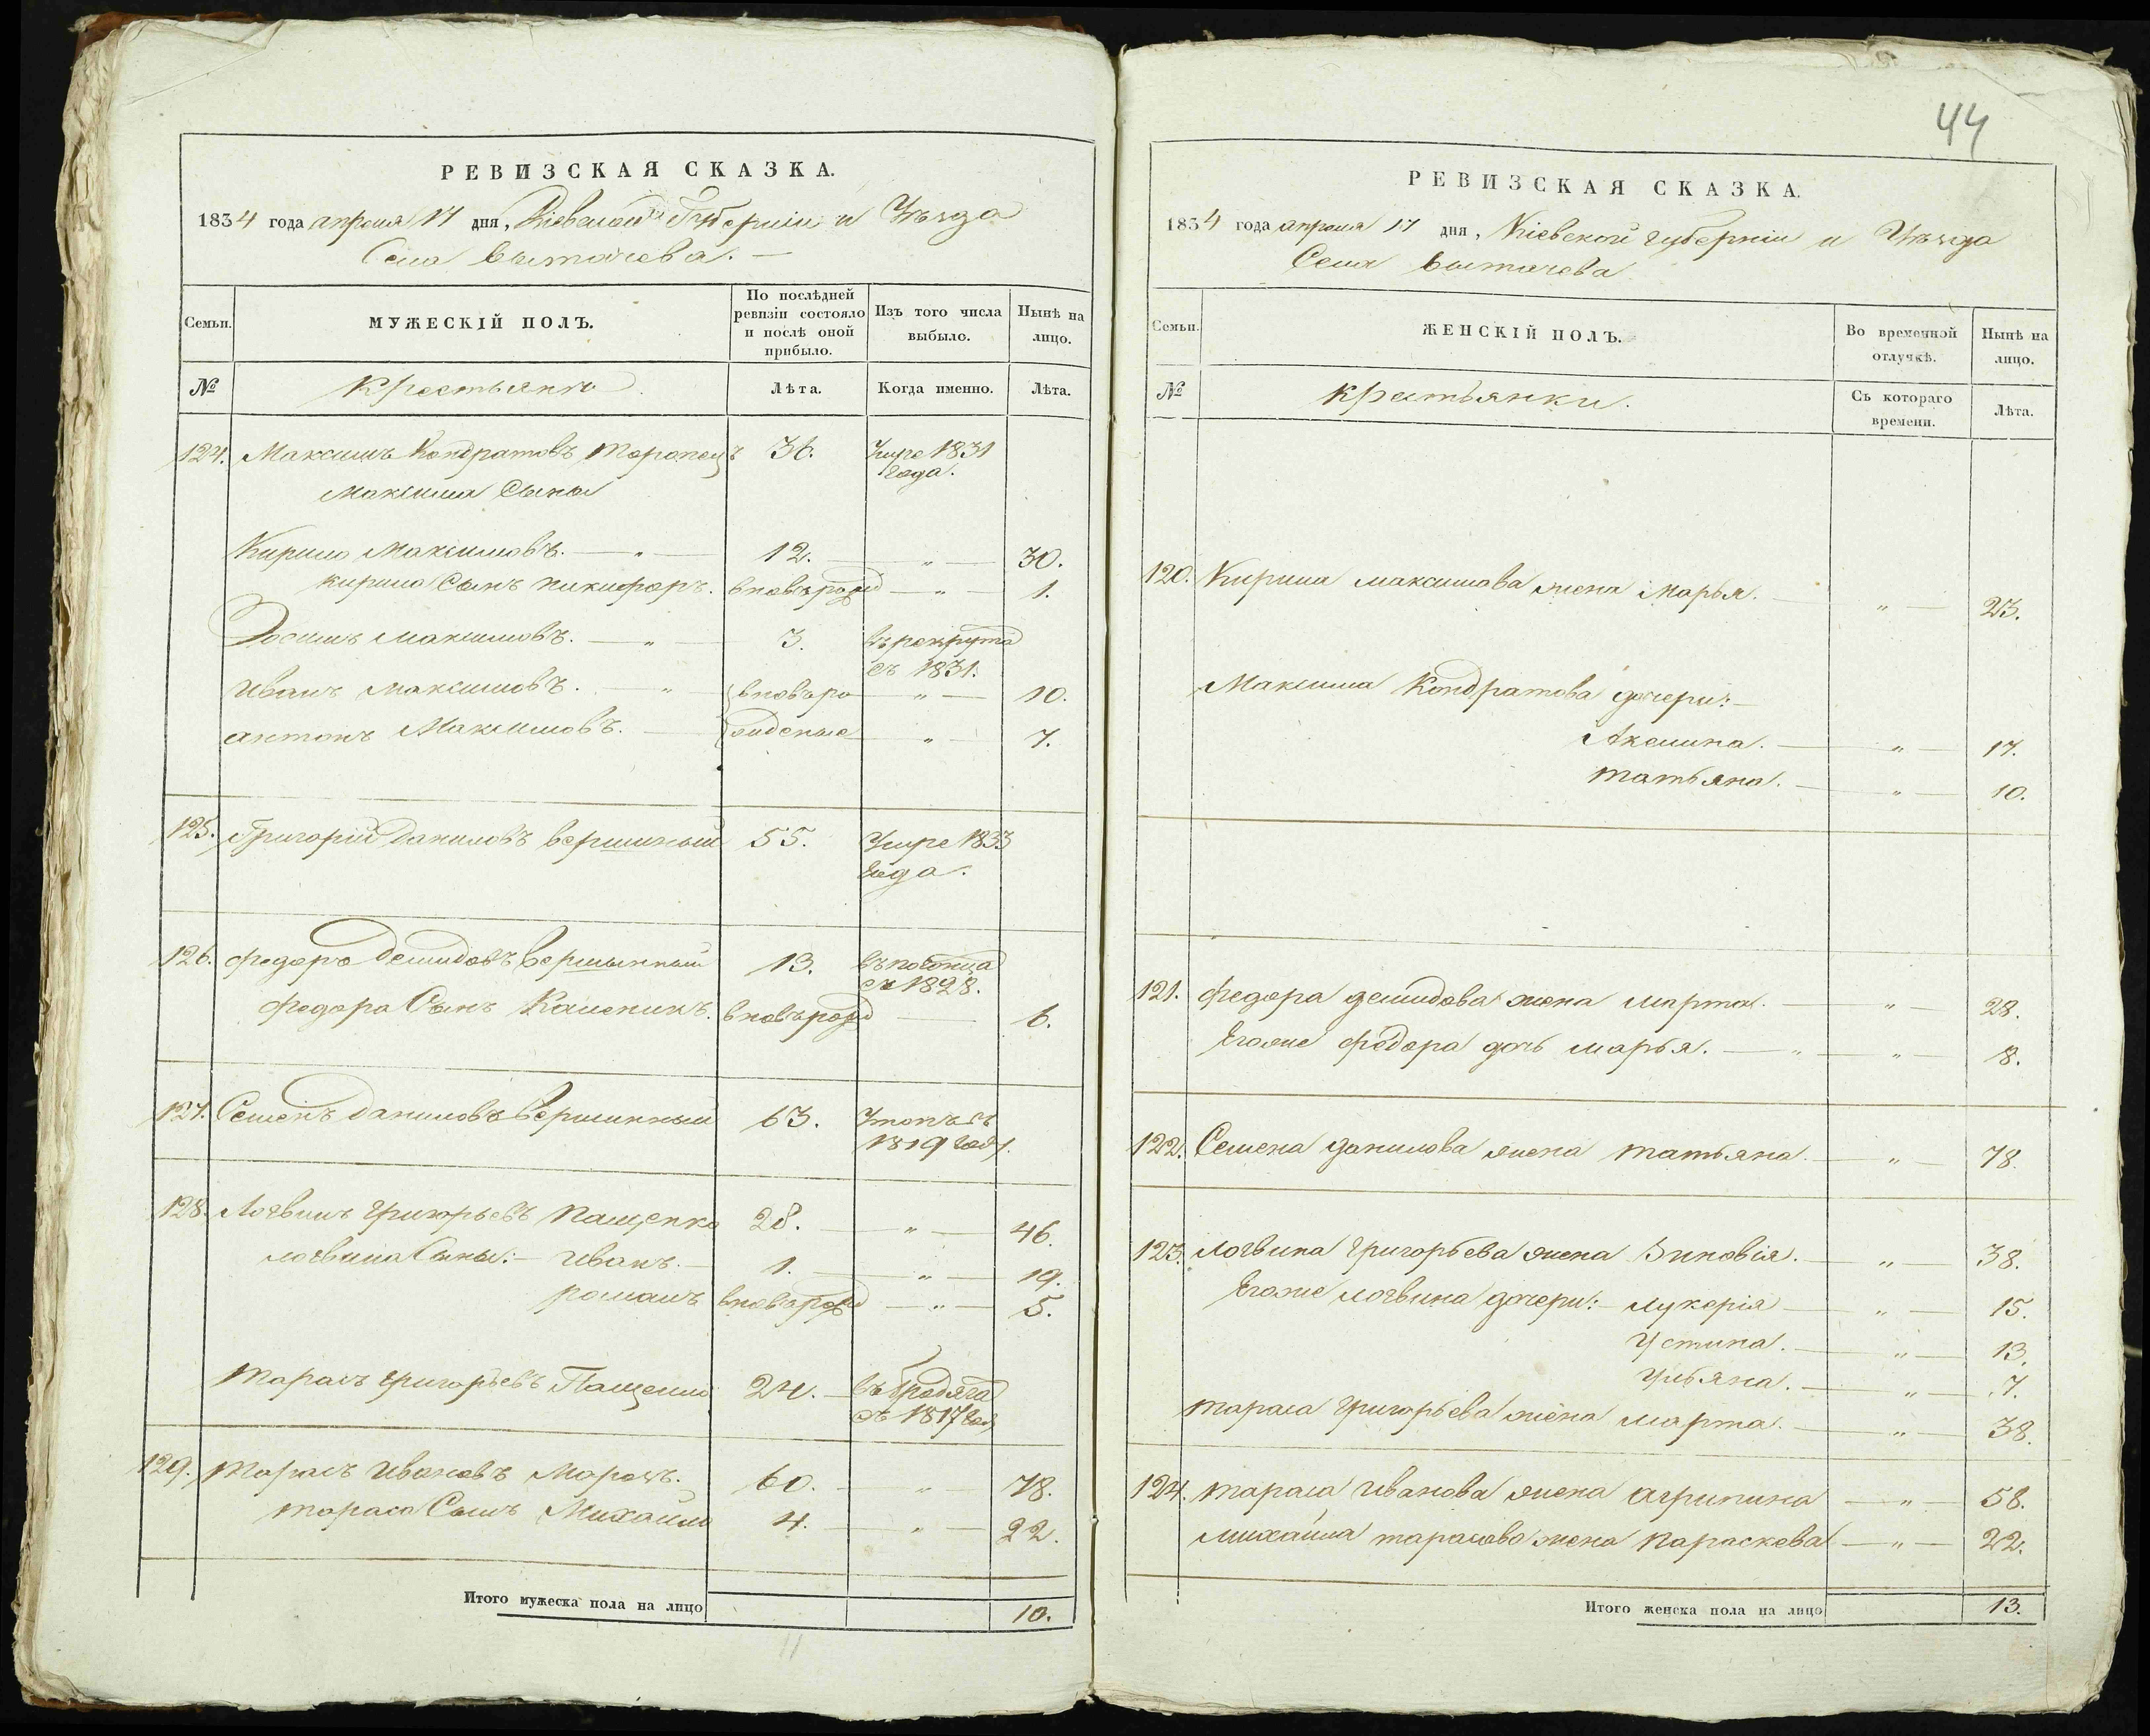 РЕВИЗСКАЯ СКАЗКА.
1834 года апреля 17 дня, Кіевской Губерніи и Уѣзда
Села Вытачева. —
Семьи.
МУЖЕСКІЙ ПОЛЪ.
По послѣдней ревизіи состояло и послѣ оной прибыло.
Изъ того числа выбыло.
Нынѣ на лицо.
№
Крестьяне
Лѣта.
Когда именно.
Лѣта.
124. Максимъ Кондратовъ 36. Умре 1831
года.
Максима Сыны
Кирило Максимовъ. — " — 12. — " — 30.
Кирила Сынъ Никифоръ. вновьрожд — " — 1.
Максимовъ. — " — 3. въ рекрута
съ 1831.
Иванъ Максимовъ. — " — вновьро — " — 10.
Антонъ Максимовъ. — жденые — " — 7.
125. Григорій Даниловъ Вершинный 55. Умре 1833
года.
126. Федоръ Демидовъ Вершинный 13.
съ 1828.
Федора Сынъ Каленикъ. вновьрожд — 6.
127. Семенъ Даниловъ Вершинный 63. Утопъ съ
1819 году.
128. Логвинъ Григорьевъ Пащенко 28. — " — 46.
Логвина Сыны: — Иванъ. — 1. — " — 19.
Романъ вновьрожд — " — 5.
Тарасъ Григорьевъ Пащенко 24. — въ бродяга
съ 1817 год
129. Тарасъ Ивановъ Морозъ. 60. — " — 78.
Тараса Сынъ Михайло 4. — " — 22.
Итого мужеска пола на лицо 10.
11
44
РЕВИЗСКАЯ СКАЗКА.
1834 года апреля 17 дня, Кіевской губерніи и Уѣзда
Села Вытачева
Семьи.
ЖЕНСКІЙ ПОЛЪ.
Во временной отлучкѣ.
Нынѣ на лицо.
№
Крестьянки.
Съ котораго времени.
Лѣта.
120. Кирила Максимова жена Марья. — " — 23.
Максима Кондратова дочери: —
Акелина. — " — 17.
Татьяна. — " — 10.
121. Федора Демидова жена Марта. — " — 28.
Егоже Федора дочь Марья. — " — " — 8.
122. Семена Данилова жена Татьяна. — " — 78.
123. Логвина Григорьева жена Зиновія. — " — 38.
Егоже Логвина дочери: — Лукерія — " — 15.
Устина. — " — 13.
Ульяна. — " — 7.
Тараса Григорьева жена Марта. — " — 38.
124. Тараса Иванова жена Агрипина — " — 58.
Михайла Тарасова жена Параскева — " — 22.
Итого женска пола на лицо 13.